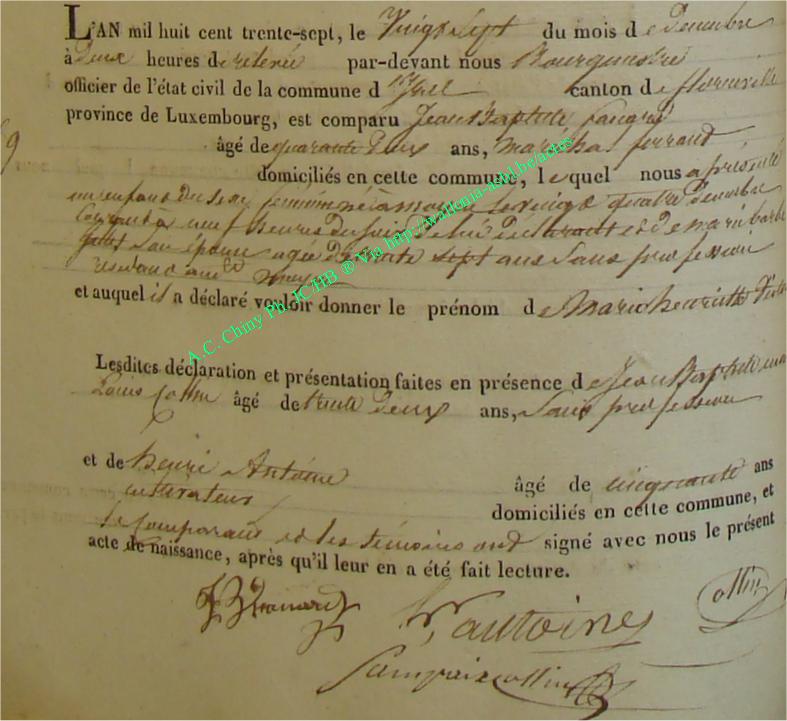 L'AN mil huit cent trente-sept, le Vingt Sept du mois de Decembre
à deux heures de relevée par-devant nous Bourguemestre
officier de l'état civil de la commune d' canton de florenville
province de Luxembourg, est comparu Jean Baptiste
9
âgé de quarante deux ans, maréchal ferrand
domiciliés en cette commune, lequel nous a présenté
un enfant du sexe feminin né à le vingt quatre decembre
courant a neuf heures du soir de lui declarant et de marie barbe
son épouse agée de trente sept ans Sans profession
et auquel il a déclaré vouloir donner le prénom de Marie henriette
Lesdites déclaration et présentation faites en présence de Jean Baptiste
Louis Collin âgé de trente deux ans, Sans profession
et de henri Antoine âgé de cinquante ans
cultivateur domiciliés en cette commune, et
le Comparant et les témoins ont signé avec nous le présent
acte de naissance, après qu'il leur en a été fait lecture.
antoine
collin
A.C. Chiny Ph. JC/HB ® Via http://wallonia-asbl.be/actes